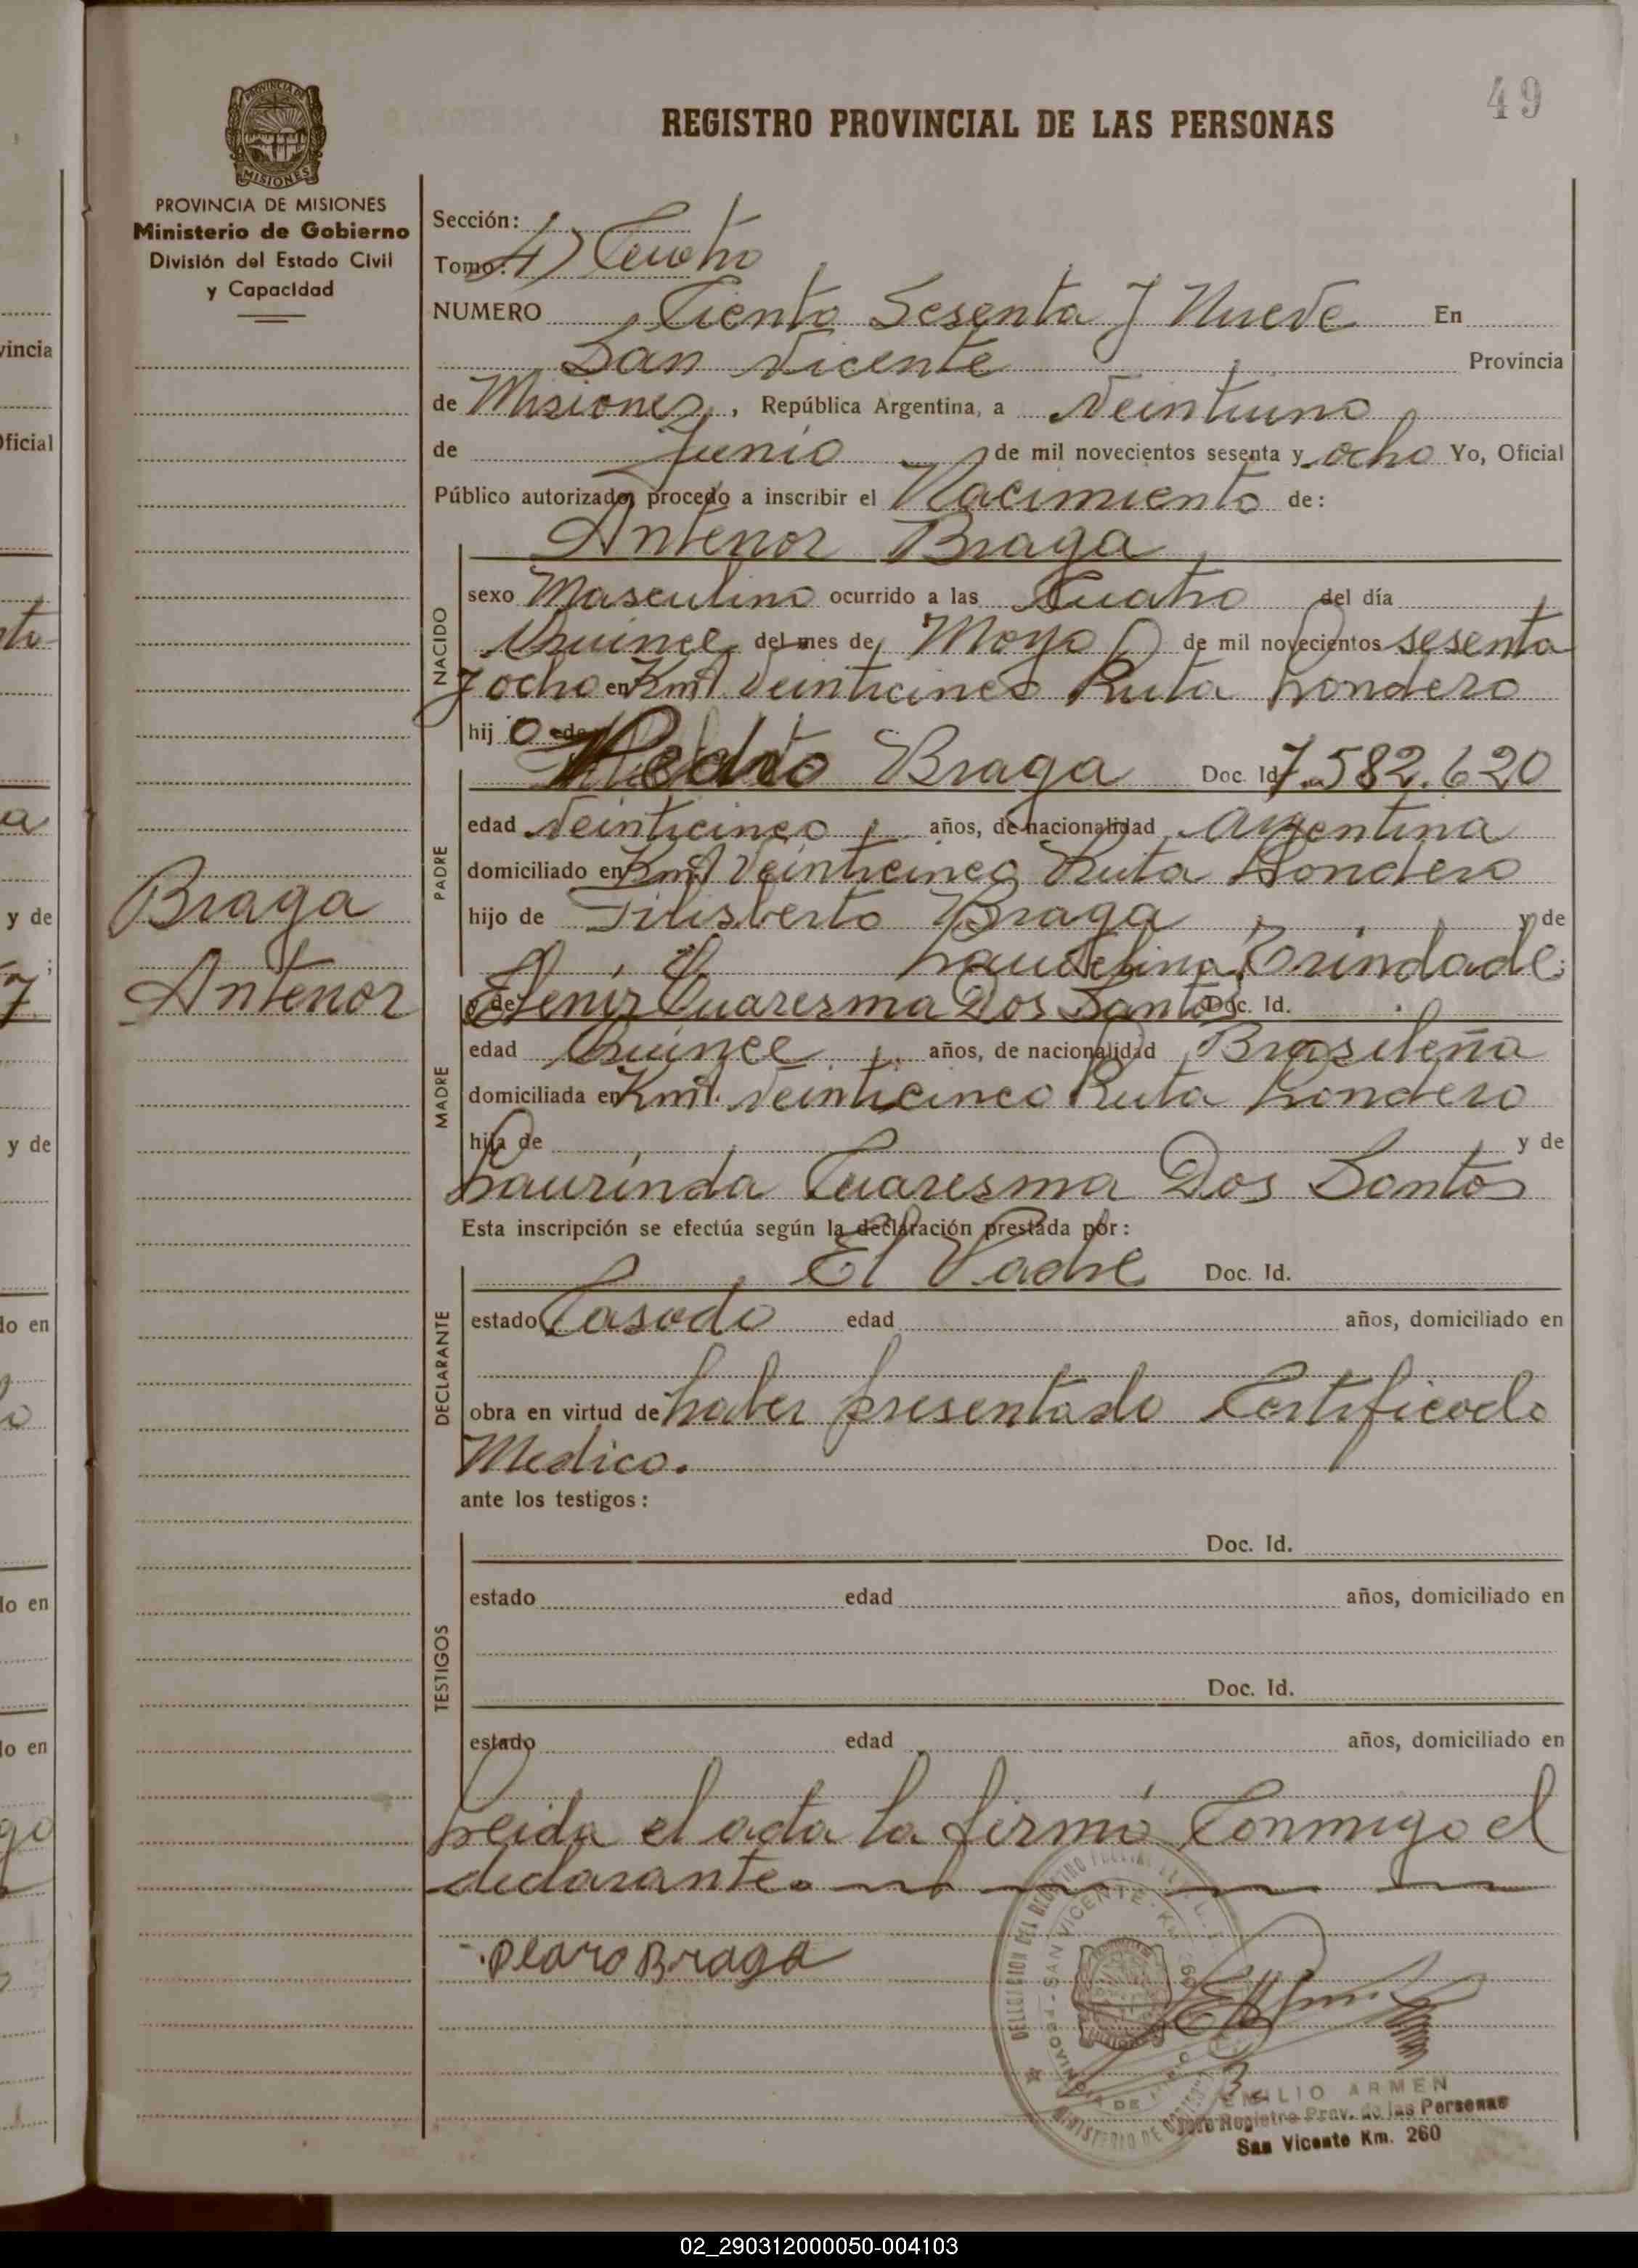 49
REGISTRO PROVINCIAL DE LAS PERSONAS
PROVINCIA DE
MISIONES
PROVINCIA DE MISIONES
Ministerio de Gobierno
División del Estado Civil
y Capacidad
Braga
Antenor
Sección:
Tomo: 4) Cuatro
NUMERO Ciento Sesenta y Nueve En
San Vicente Provincia
de Misiones, República Argentina, a Veintiuno
de Junio de mil novecientos sesenta y ocho Yo, Oficial
Público autorizado, procedo a inscribir el Nacimiento de:
Antenor Braga
NACIDO
sexo Masculino ocurrido a las Cuatro del día
Quince del mes de Mayo de mil novecientos sesenta
y ocho en Kmt Veinticinco Ruta Londero
hijo de
Pedro Braga Doc. Id. 7.582.620
PADRE
edad Veinticinco años, de nacionalidad Argentina
domiciliado en Kmt Veinticinco Ruta Londero
hijo de Filisberto Braga y de
Laudelina Trindade;
y de Elenir Cuaresma Dos Santos Doc. Id.
MADRE
edad Quince años, de nacionalidad Brasileña
domiciliada en Kmt. Veinticinco Ruta Londero
hija de y de
Laurinda Cuaresma Dos Santos
Esta inscripción se efectúa según la declaración prestada por:
El Padre Doc. Id.
DECLARANTE
estado Casado edad años, domiciliado en
obra en virtud de haber presentado Certificado
Medico.
ante los testigos:
TESTIGOS
Doc. Id.
estado edad años, domiciliado en
Doc. Id.
estado edad años, domiciliado en
Leida el acta la firmó Conmigo el
declarante.
Pedro Braga
SAN VICENTE - Km. 260
MINISTERIO DE
EMILIO ARMEN
Jefe Registro Prov. de las Personas
San Vicente Km. 260
vincia
Oficial
y de
y de
do en
do en
do en
02_290312000050-004103